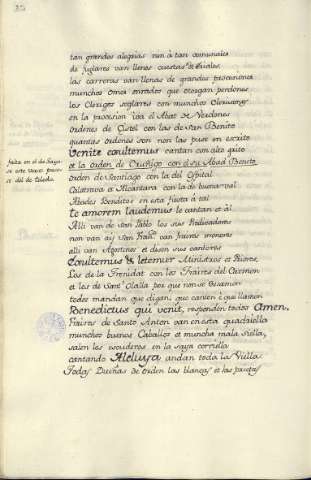 tan grandes alegrias nin à tan comunales
de juglares van llenas cuestas et Eriales.
las carreras van llenas de grandes procesiones
munchos omes onrados que otorgan perdones
los Clerigos seglares con munchos Clerizones
en la procesion iva el Abat de
ordenes de Cistel con las de San Benito
quantas ordenes son non las puse en escrito
Venite exultemus cantan con alto grito
falta en el de Gayo-
so este verso pues-
to del de Toledo.
et la orden de Cruñigo con el su Abad Benito
orden de Santiago con la del Ospital
Calatrava et Alcantara con la de buena-val
Abades Benditos en esta fiesta à tal
te amorem laudemus le cantan et ál
Alli van de San Pablo los sus Predicadores
non va ay San Fran.co van fraires menores
alli van Agostines et disen sus cantores
Exultemus & letemur Ministros et Priores.
Los de la Trenidat con los Fraires del Carmen
et los de Sant Olalla por que non se
todos mandan que digan, que canten è que llamen
Benedictus qui venit, responden todos Amen.
Fraires de Santo Anton van en esta quadriella
munchos buenos Caballos et muncha mala siella,
salen los escuderos en la saya cortiella
cantando Aleluya andan toda la Viella
Todas Dueñas de Orden las blancas et las prietas